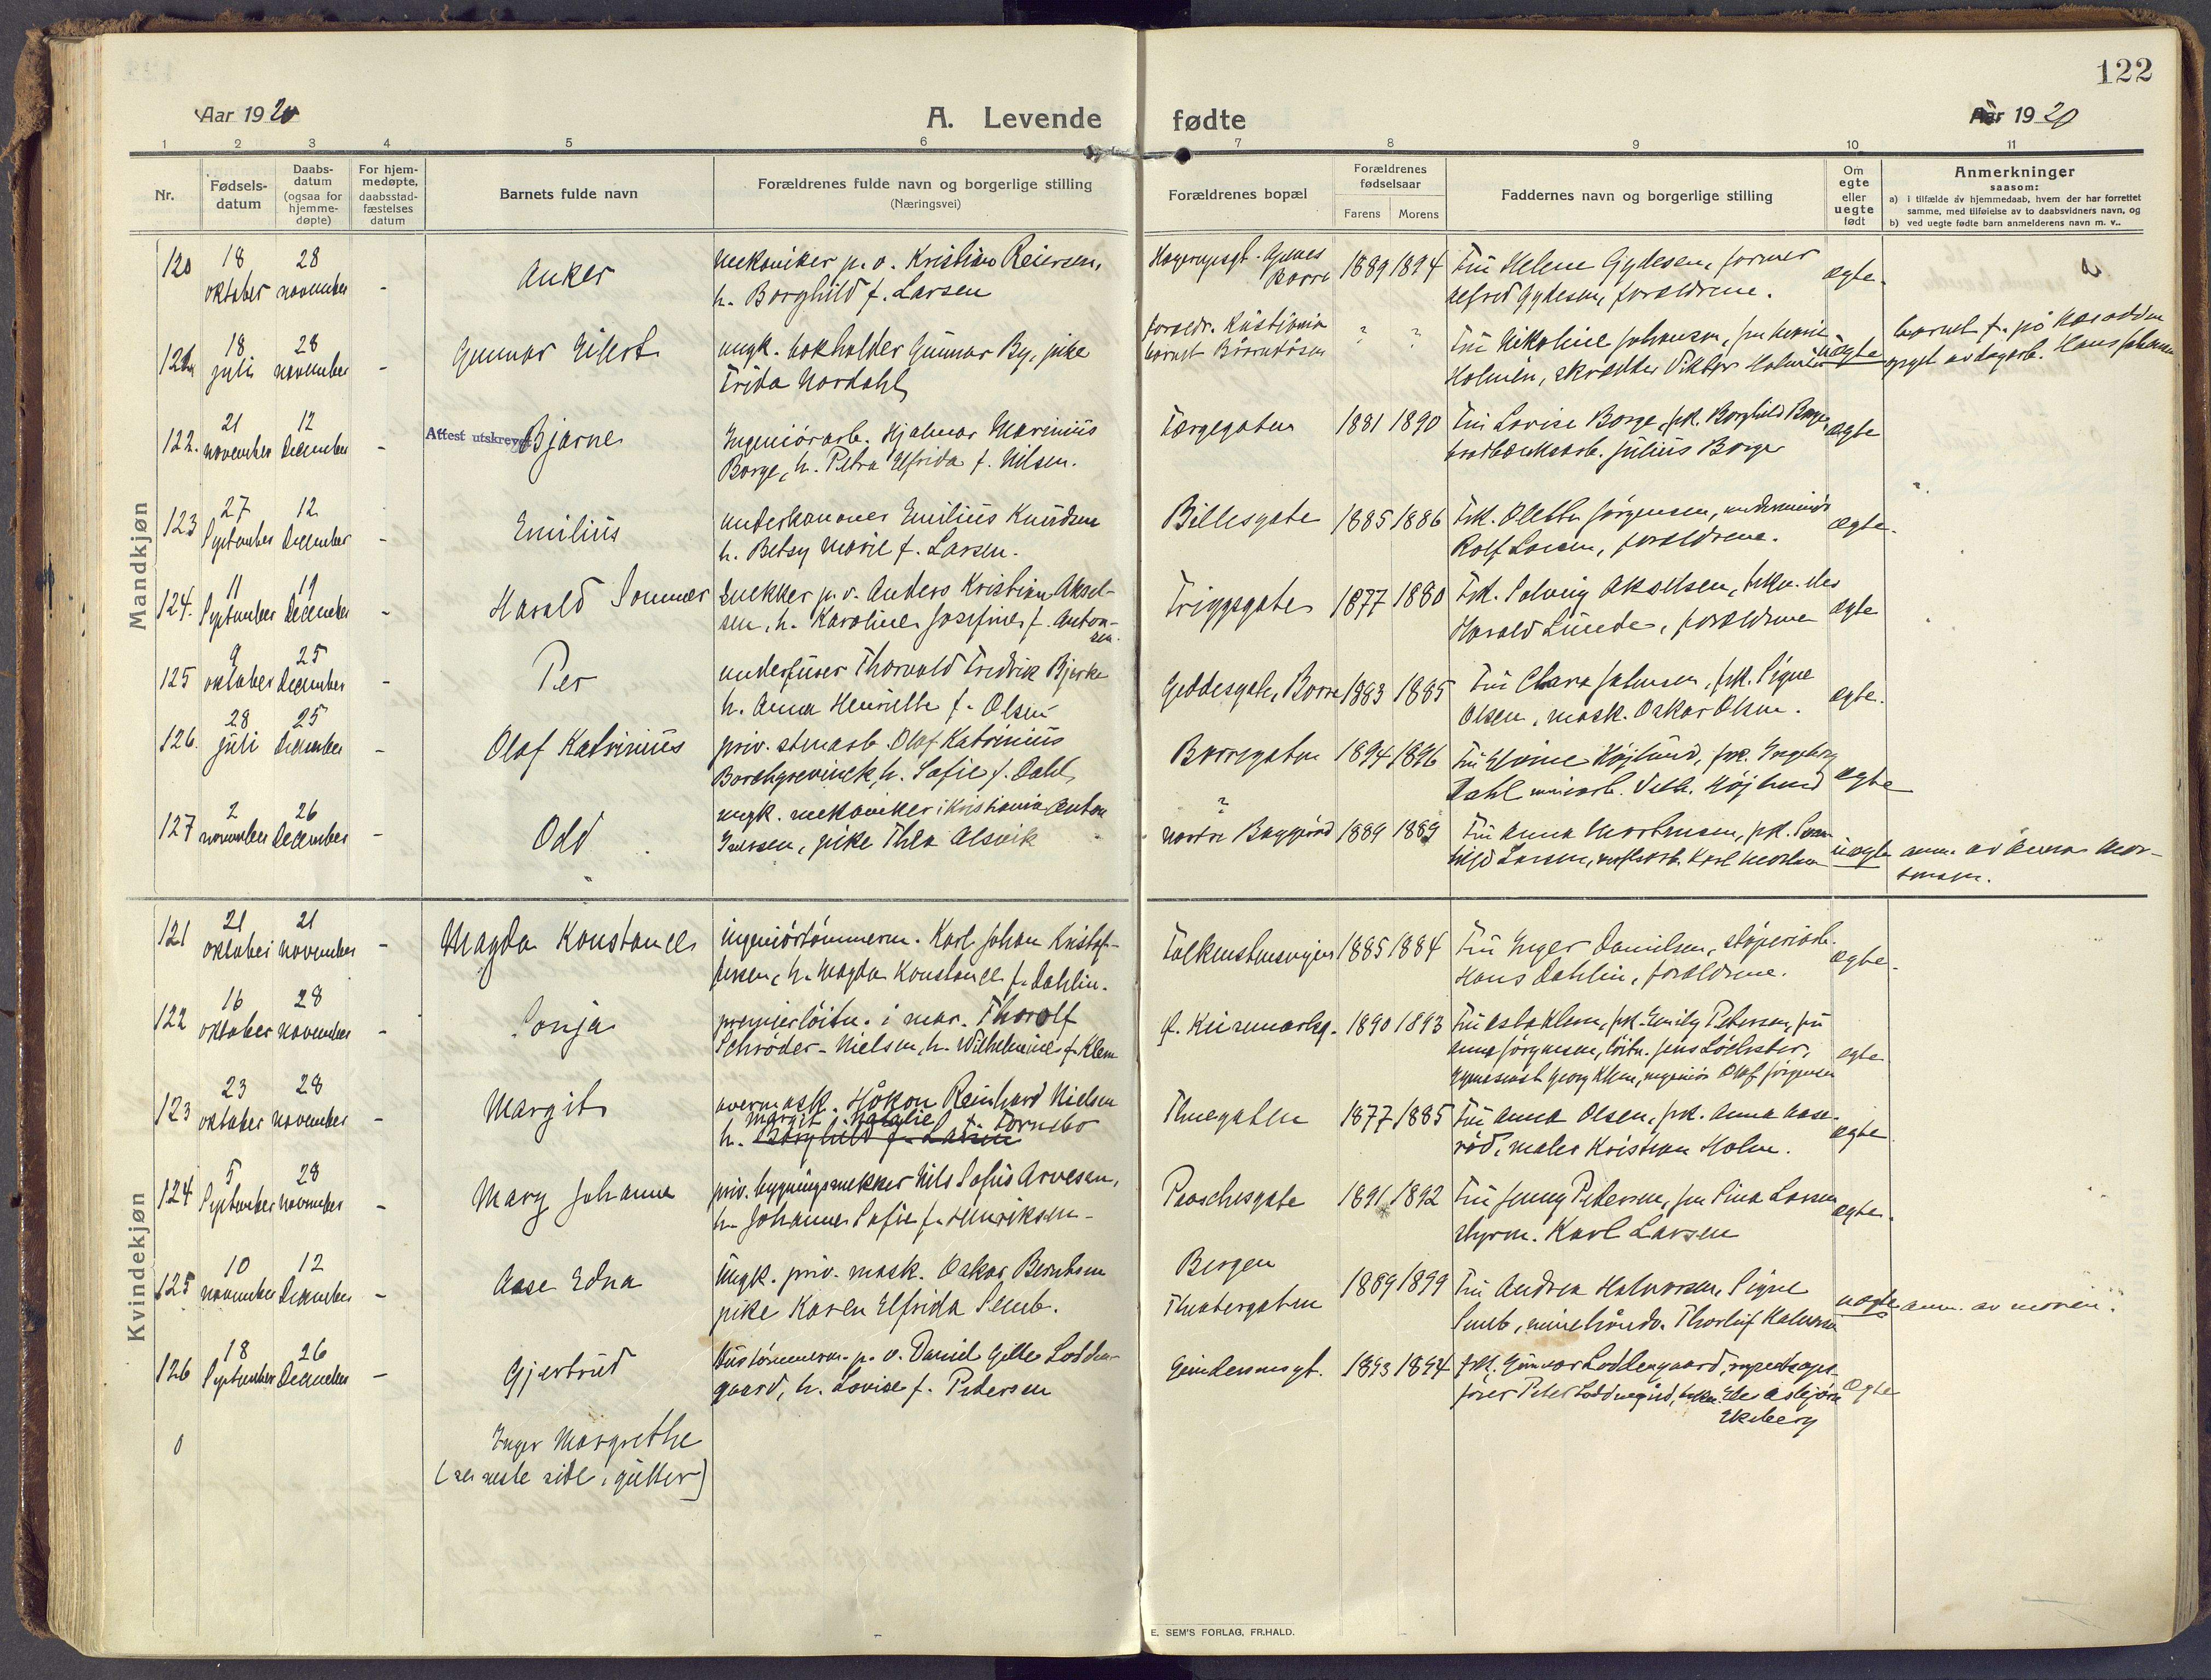 122
Aar 1920
A. Levende fødte
Aar 1920
1 2 3 4 5 6 7 8 9 10 11
Nr.
Fødsels-
datum
Daabs-
datum
(ogsaa for
hjemme-
døpte)
For hjem-
medøpte,
daabsstad-
fæstelses
datum
Barnets fulde navn
Forældrenes fulde navn og borgerlige stilling
(Næringsvei)
Forældrenes bopæl
Forældrenes
fødselsaar
Farens Morens
Faddernes navn og borgerlige stilling
Om
egte
eller
uegte
født
Anmerkninger
saasom:
a) i tilfælde av hjemmedaab, hvem der har forrettet
samme, med tilføielse av to daabsvidners navn, og
b) ved uegte fødte barn anmelderens navn m. v..
Mandkjøn
120 18 28
oktober november - Anker
mekaniker p. v. Kristian Reiersen,
h. Borghild f. Larsen
Borre 1889 1894
Fru Helene Gydesen, former
Alfred Gydesen, forældrene. ægte.
121 18 28
juli november - Gunnar Eilert
ungk. bokholder Gunnar By, pike
Frida Nordahl
forældr. Kristiania ? ?
Fru Nikoline Johansen,
Holmén, skrædder Viktor Holmén uægte
opgit av dagarb. Hans Johansen
122. 21 12
november December - Attest utskrevet Bjarne
Ingeniørarb. Hjalmar Marinius
Borge, h. Petra Elfrida f. Nilsen.
Færgegaten 1881 1890
Fru Lovise Borge, frk. Borghild Borge,
Julius Borge ægte
123 27 12
September December - Emilius
underkanoner Emilius Knudsen
h. Betsy Marie f. Larsen.
Billesgate 1885 1886
Frk. Olette Jørgensen, underminør
Rolf Larsen, forældrene. ægte.
124. 11 19
September December - Harald Sommer
Snekker p. v. Anders Kristian Aksel-
sen, h. Karoline Josefine f. Anton-
sen.
Friggsgate 1877 1880
Frk. Solveig Akselsen,
Harald Lunde, forældrene ægte
125 9 25
oktober December - Per
underfurer Thorvald Fredrik Bjerke
h. Anna Henriette f. Olsen
Geddesgate, Borre 1883 1885
Fru Clara Johnsen, frk. Signe
Olsen, mask. Oskar Olsen. ægte.
126. 28 25
juli December - Olaf Katrinius
priv. stenarb. Olaf Katrinius
Borchgrevinck, h. Sofie f. Dahl
Borregaten 1894 1896
Højlund, frk. Ingeborg
Dahl minearb. Vilh. Højlund ægte
127 2 26
november December - Odd
ungk. mekaniker i Kristiania Anton
Iversen, pike Thea Alsvik
?
Nordre 1889 1889
Fru Anna Mortensen, frk.
Larsen, Karl Mortensen uægte
anm. av Anna Mor-
tensen.
Kvindekjøn
121 21 21
oktober november - Magda Konstance
Ingeniørtømmerm. Karl Johan Kristof-
fersen, h. Magda Konstance f. Dahlin.
Falkenstensveien 1885 1884
Fru Inger Danielsen, støperiarb.
Hans Dahlin, forældrene. ægte.
122 16 28
oktober november - Sonja
premierløitn. i mar. Thorolf
Schrøder-Nielsen, h. Wilhelmine f. Klem
1890 1893
Fru Asta Klem, frk. Emily Petersen, fru
Anna Jørgensen, løitn. Jens
Georg Klem, ingeniør Olaf Jørgensen egte
123 23 28
oktober november - Margit
overmask. Håkon Reinhard Nielsen
Margit Natalie f. Tornebo
h. Borghild f. Larsen
Thuegaten 1877 1885
Fru Anna Olsen, frk. Anna Aase-
rød, maler Kristian Holm. ægte
124 5 28
September november - Mary Johanne
priv. bygningssnekker Nils Sofus Arvesen,
h. Johanne Sofie f. Henriksen.
Paaschesgate 1891 1892
Fru Jenny Petersen, fru Sina Larsen
styrm. Karl Larsen ægte.
125 10 12
november December - Aase Edna
Ungk. priv. mask. Oskar Berntsen
pike Karen Elfrida Semb.
Bergen
Theatergaten 1889 1899
Fru Andrea Halvorsen, Signe
Semb, minehåndv. Thorleif Halvorsen uægte
anm. av moren.
126 18 26
September December - Gjertrud
Hustømmerm. p. v. Daniel Gille Lodden-
gaard, h. Lovise f. Pedersen
Gundersensgt. 1893 1894
frk. Gunvor Loddengaard,
Peter Loddengård, Asbjørn
Ekeberg ægte
0 Inger Margrethe
(se neste side, gutter)
E. SEM'S FORLAG, FR.HALD.